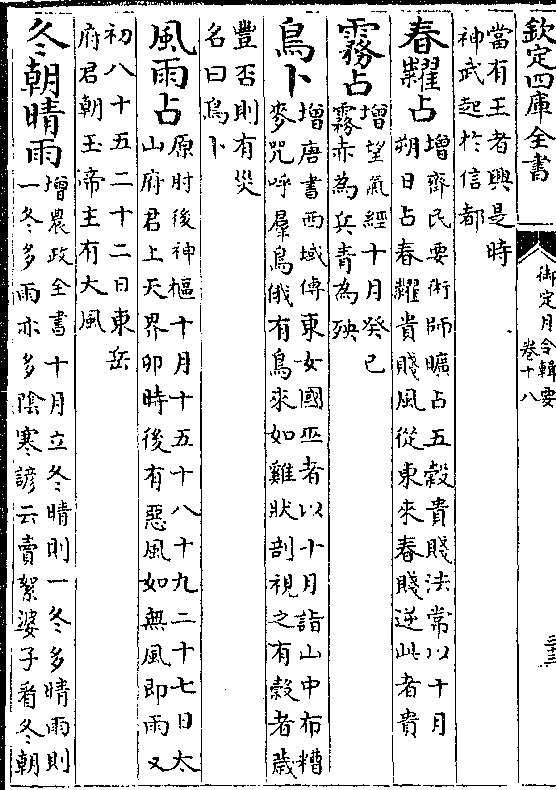 欽定四庫全書
御定月令輯要
卷十八
三十三
當有王者興是時
神武起於信都
春糶占
增齊民要術師曠占五穀貴賤法常以十月
朔日占春糶貴賤風從東來春賤逆此者貴
霧占
增望氣經十月癸巳
霧赤為兵青為殃
鳥卜
增唐書西域傳東女國巫者以十月詣山中布糟
麥咒呼羣鳥俄有鳥來如雞狀剖視之有穀者歲
豐否則有災
名曰鳥卜
風雨占
原肘後神樞十月十五十八十九二十七日太
山府君上天界卯時後有惡風如無風即雨又
初八十五二十二日東岳
府君朝玉帝主有大風
冬朝晴雨
增農政全書十月立冬晴則一冬多晴雨則
一冬多雨亦多陰寒諺云賣絮婆子看冬朝